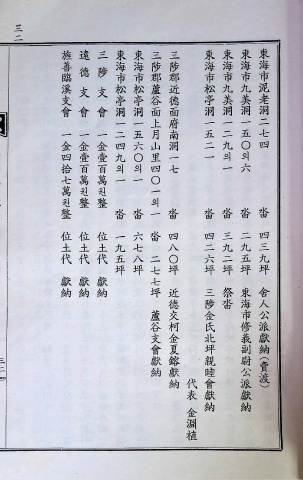 東海市泥老洞二七四 畓 四三九坪 舍人公派獻納(賣渡)
東海市九美洞一五〇의六 畓 二九五坪 東海市修義副尉公派獻納
東海市九美洞一二九의一 畓 三九二坪 祭畓
東海市松亭洞一五二一 畓 四二六坪 三陟金氏北坪親睦會獻納
代表 金淵植
三陟郡近德面府南洞一七 畓 四八〇坪 近德交柯金夏鎔獻納
三陟郡蘆谷面上月山里四〇一의一 畓 二七七坪 蘆谷支會獻納
東海市松亭洞一五六〇의一 畓 六七八坪
東海市松亭洞一二四九의一 畓 一九五坪
三陟支會 一金壹百萬원整 位土代 獻納
遠德支會 一金壹百萬원整 位土代 獻納
旌善臨溪支會 一金四拾七萬원整 位土代 獻納
三二